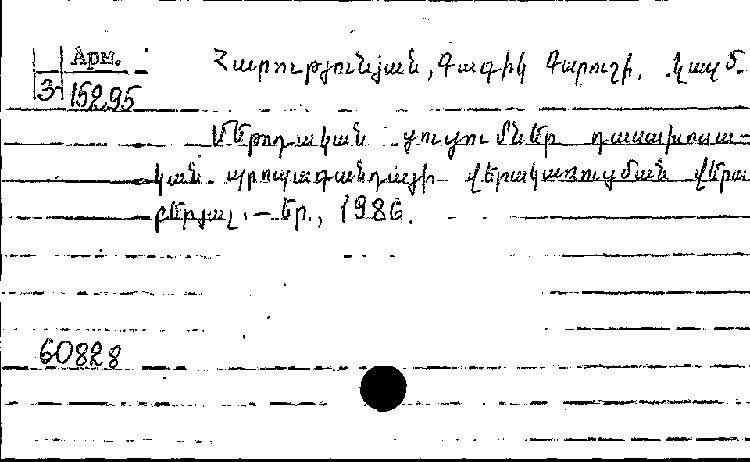 Арм.
3-15295
Հարությունյան, Գագիկ Գարուշի.
Մեթոդական ցուցումներ դասախոսա-
կան պրոպագանդայի վերակառուցման վերա
բերյալ. – Եր., 1986.
60828